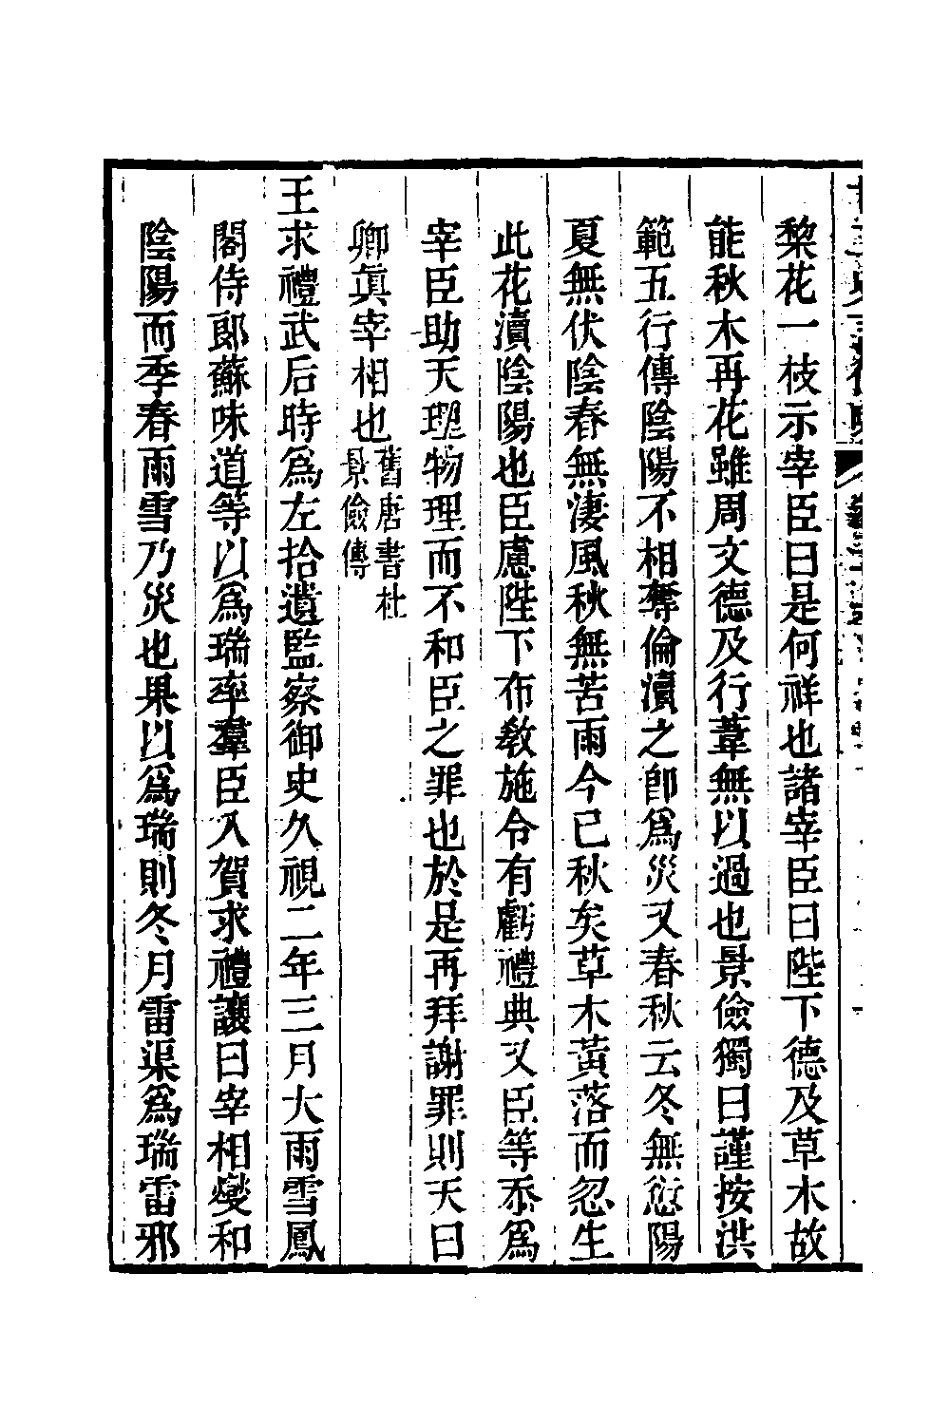 黎花一枝示宰臣曰是何祥也諸宰臣曰陛下德及草木故
能秋木再花雖周文德及行葦無以過也景儉獨曰謹按洪
範五行傳陰陽不相奪倫瀆之卽爲災又春秋云冬無愆陽
夏無伏陰春無淒風秋無苦雨今已秋矣草木黃落而忽生
此花瀆陰陽也臣慮陛下布敎施令有虧禮典又臣等忝爲
宰臣助天理物理而不和臣之罪也於是再拜謝罪則天曰
卿眞宰相也舊唐書杜
景儉傳
王求禮武后時爲左拾遺監察御史久視二年三月大雨雪鳳
閣侍郎蘇味道等以爲瑞率羣臣入賀求禮讓曰宰相燮和
陰陽而季春雨雪乃災也果以爲瑞則冬月雷渠爲瑞雷邪